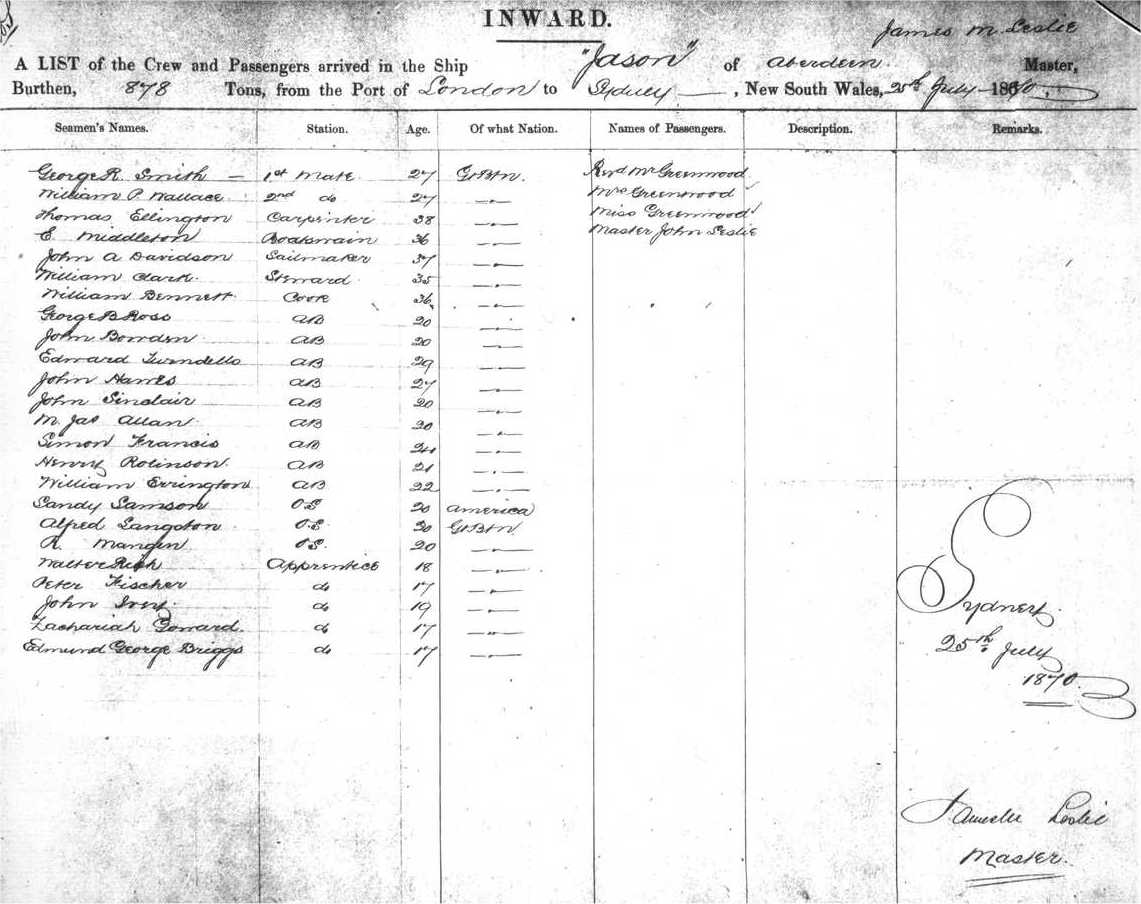 INWARD.
James M Leslie
A LIST of the Crew and Passengers arrived in the Ship "Jason" of Aberdeen. Master,
Burthen, 878 Tons, from the Port of London to Sydney, New South Wales, 25th July 1870.
Seamen's Names. Station. Age. Of what Nation. Names of Passengers. Description. Remarks.
George R. Smith 1st Mate 27 Gt Btn. Revd Mr Greenwood
William P. Wallace 2nd do 27 —"— Mrs Greenwood
Thomas Ellington Carpenter 38 —"— Miss Greenwood
E. Middleton Boatswain 36 —"— Master John Leslie
John A Davidson Sailmaker 37 —"—
William Clark. Steward. 35 —"—
William Bennett. Cook 36 —"—
George B Ross AB 20 —"—
John Bowden AB 20 —"—
Edward AB 29 —"—
John AB 27 —"—
John Sinclair AB 20 —"—
M. Jas Allan. AB —"—
Simon Francis AB —"—
Henry Robinson. AB 21 —"—
William Errington AB 22 —"—
Sandy Samson OS 20 America
Alfred Langston O.S Gt Btn
R. Mangin OS. 20 —"—
Walter Rich Apprentice 18 —"—
Peter Fischer do 17 —"—
John Ivey. do 19 —"—
Zachariah Goward. do 17 —"—
Edmund George Briggs do 17 —"—
Sydney.
25th July
1870.
James M Leslie
Master.